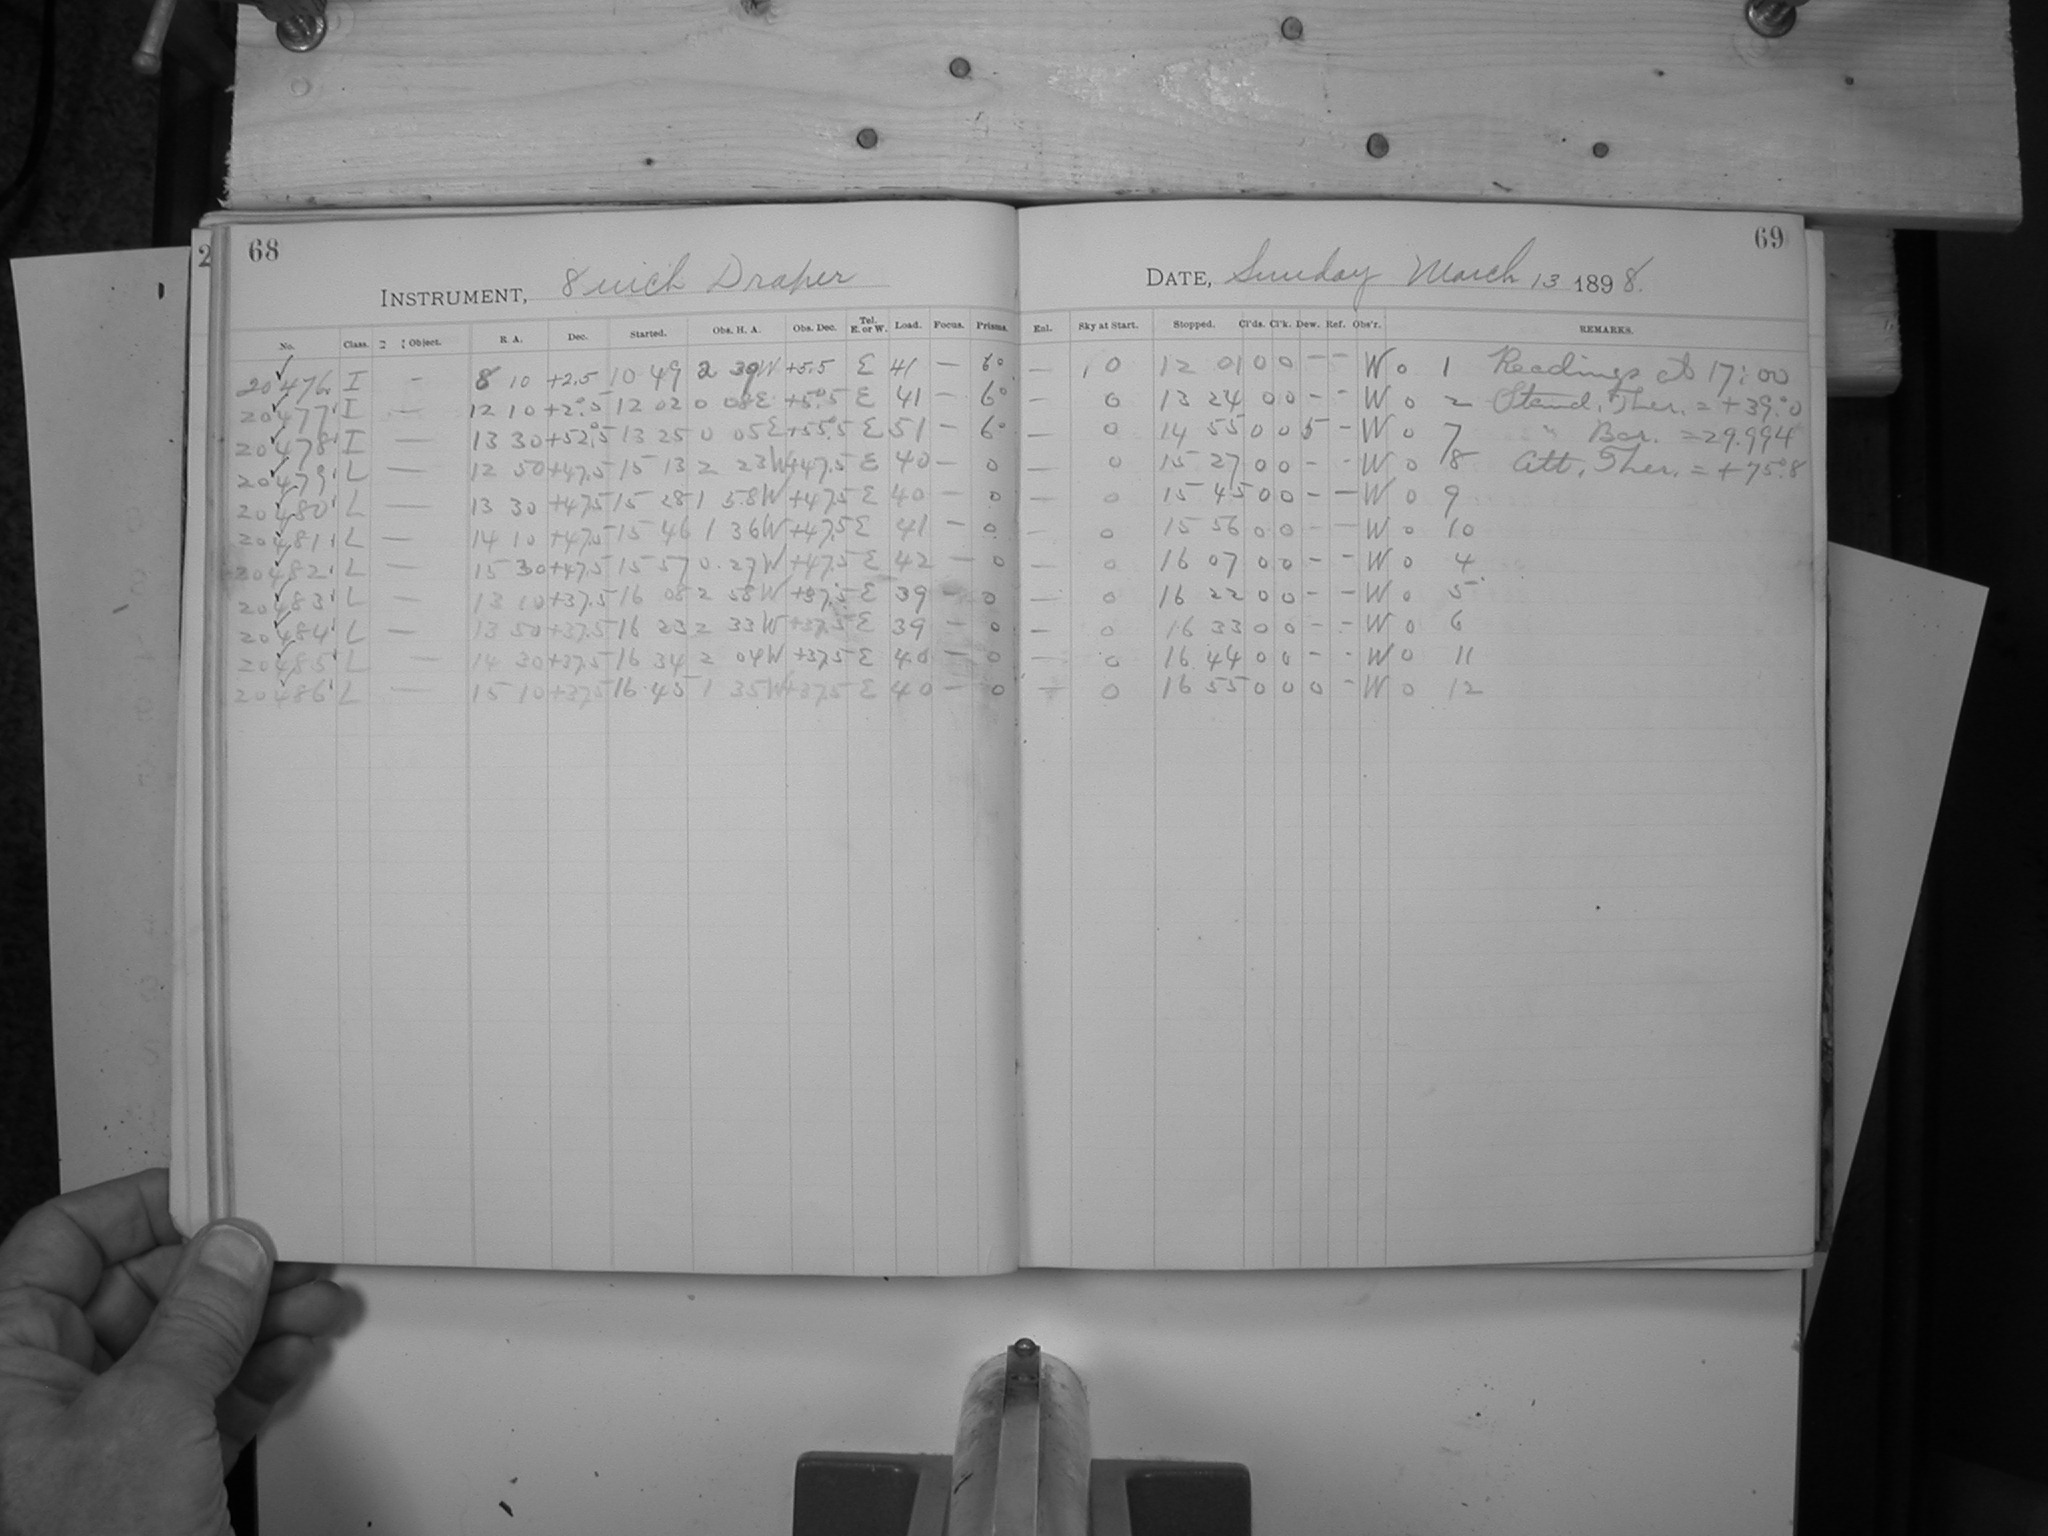 68
INSTRUMENT, 8 inch Draper
No. Class. Object. R. A. Dec. Started. Obs. H. A. Obs. Dec. Tel. E. or W. Load. Focus. Prisms.
20476 I — 8 10 +2.5 10 49 2 39W +5.5 E 41 — 6°
20477 I — 12 10 +2°.5 12 02 0 08E +5°.5 E 41 — 6°
20478 I — 13 30 +52°.5 13 25 0 05E +55°.5 E 51 — 6°
20479 L — 12 50 +47.5 15 13 2 23W +47.5 E 40 — 0
20480 L — 13 30 +47.5 15 28 1 58W +47.5 E 40 — 0
20481 L — 14 10 +47.5 15 46 1 36W +47.5 E 41 — 0
20482 L — 15 30 +47.5 15 57 0 27W +47.5 E 42 — 0
20483 L — 13 10 +37.5 16 08 2 58W +37.5 E 39 — 0
20484 L — 13 50 +37.5 16 23 2 33W +37.5 E 39 — 0
20485 L — 14 30 +37.5 16 34 2 04W +37.5 E 40 — 0
20486 L — 15 10 +37.5 16 45 1 35W +37.5 E 40 — 0
69
DATE, Sunday March 13 1898.
Enl. Sky at Start. Stopped. Cl'ds. Cl'k. Dew. Ref. Obs'r. REMARKS.
— 0 12 01 0 0 – – W 0 1 Readings at 17:00
— 0 13 24 0 0 – – W 0 2 Stand. Ther. = +39.°0
— 0 14 55 0 0 5 – W 0 7 " Bar. = 29.994
— 0 15 27 0 0 – – W 0 8 Att. Ther. = +75.°8
— 0 15 45 0 0 – – W 0 9
— 0 15 56 0 0 – – W 0 10
— 0 16 07 0 0 – – W 0 4
— 0 16 22 0 0 – – W 0 5
— 0 16 33 0 0 – – W 0 6
— 0 16 44 0 0 – – W 0 11
— 0 16 55 0 0 0 – W 0 12